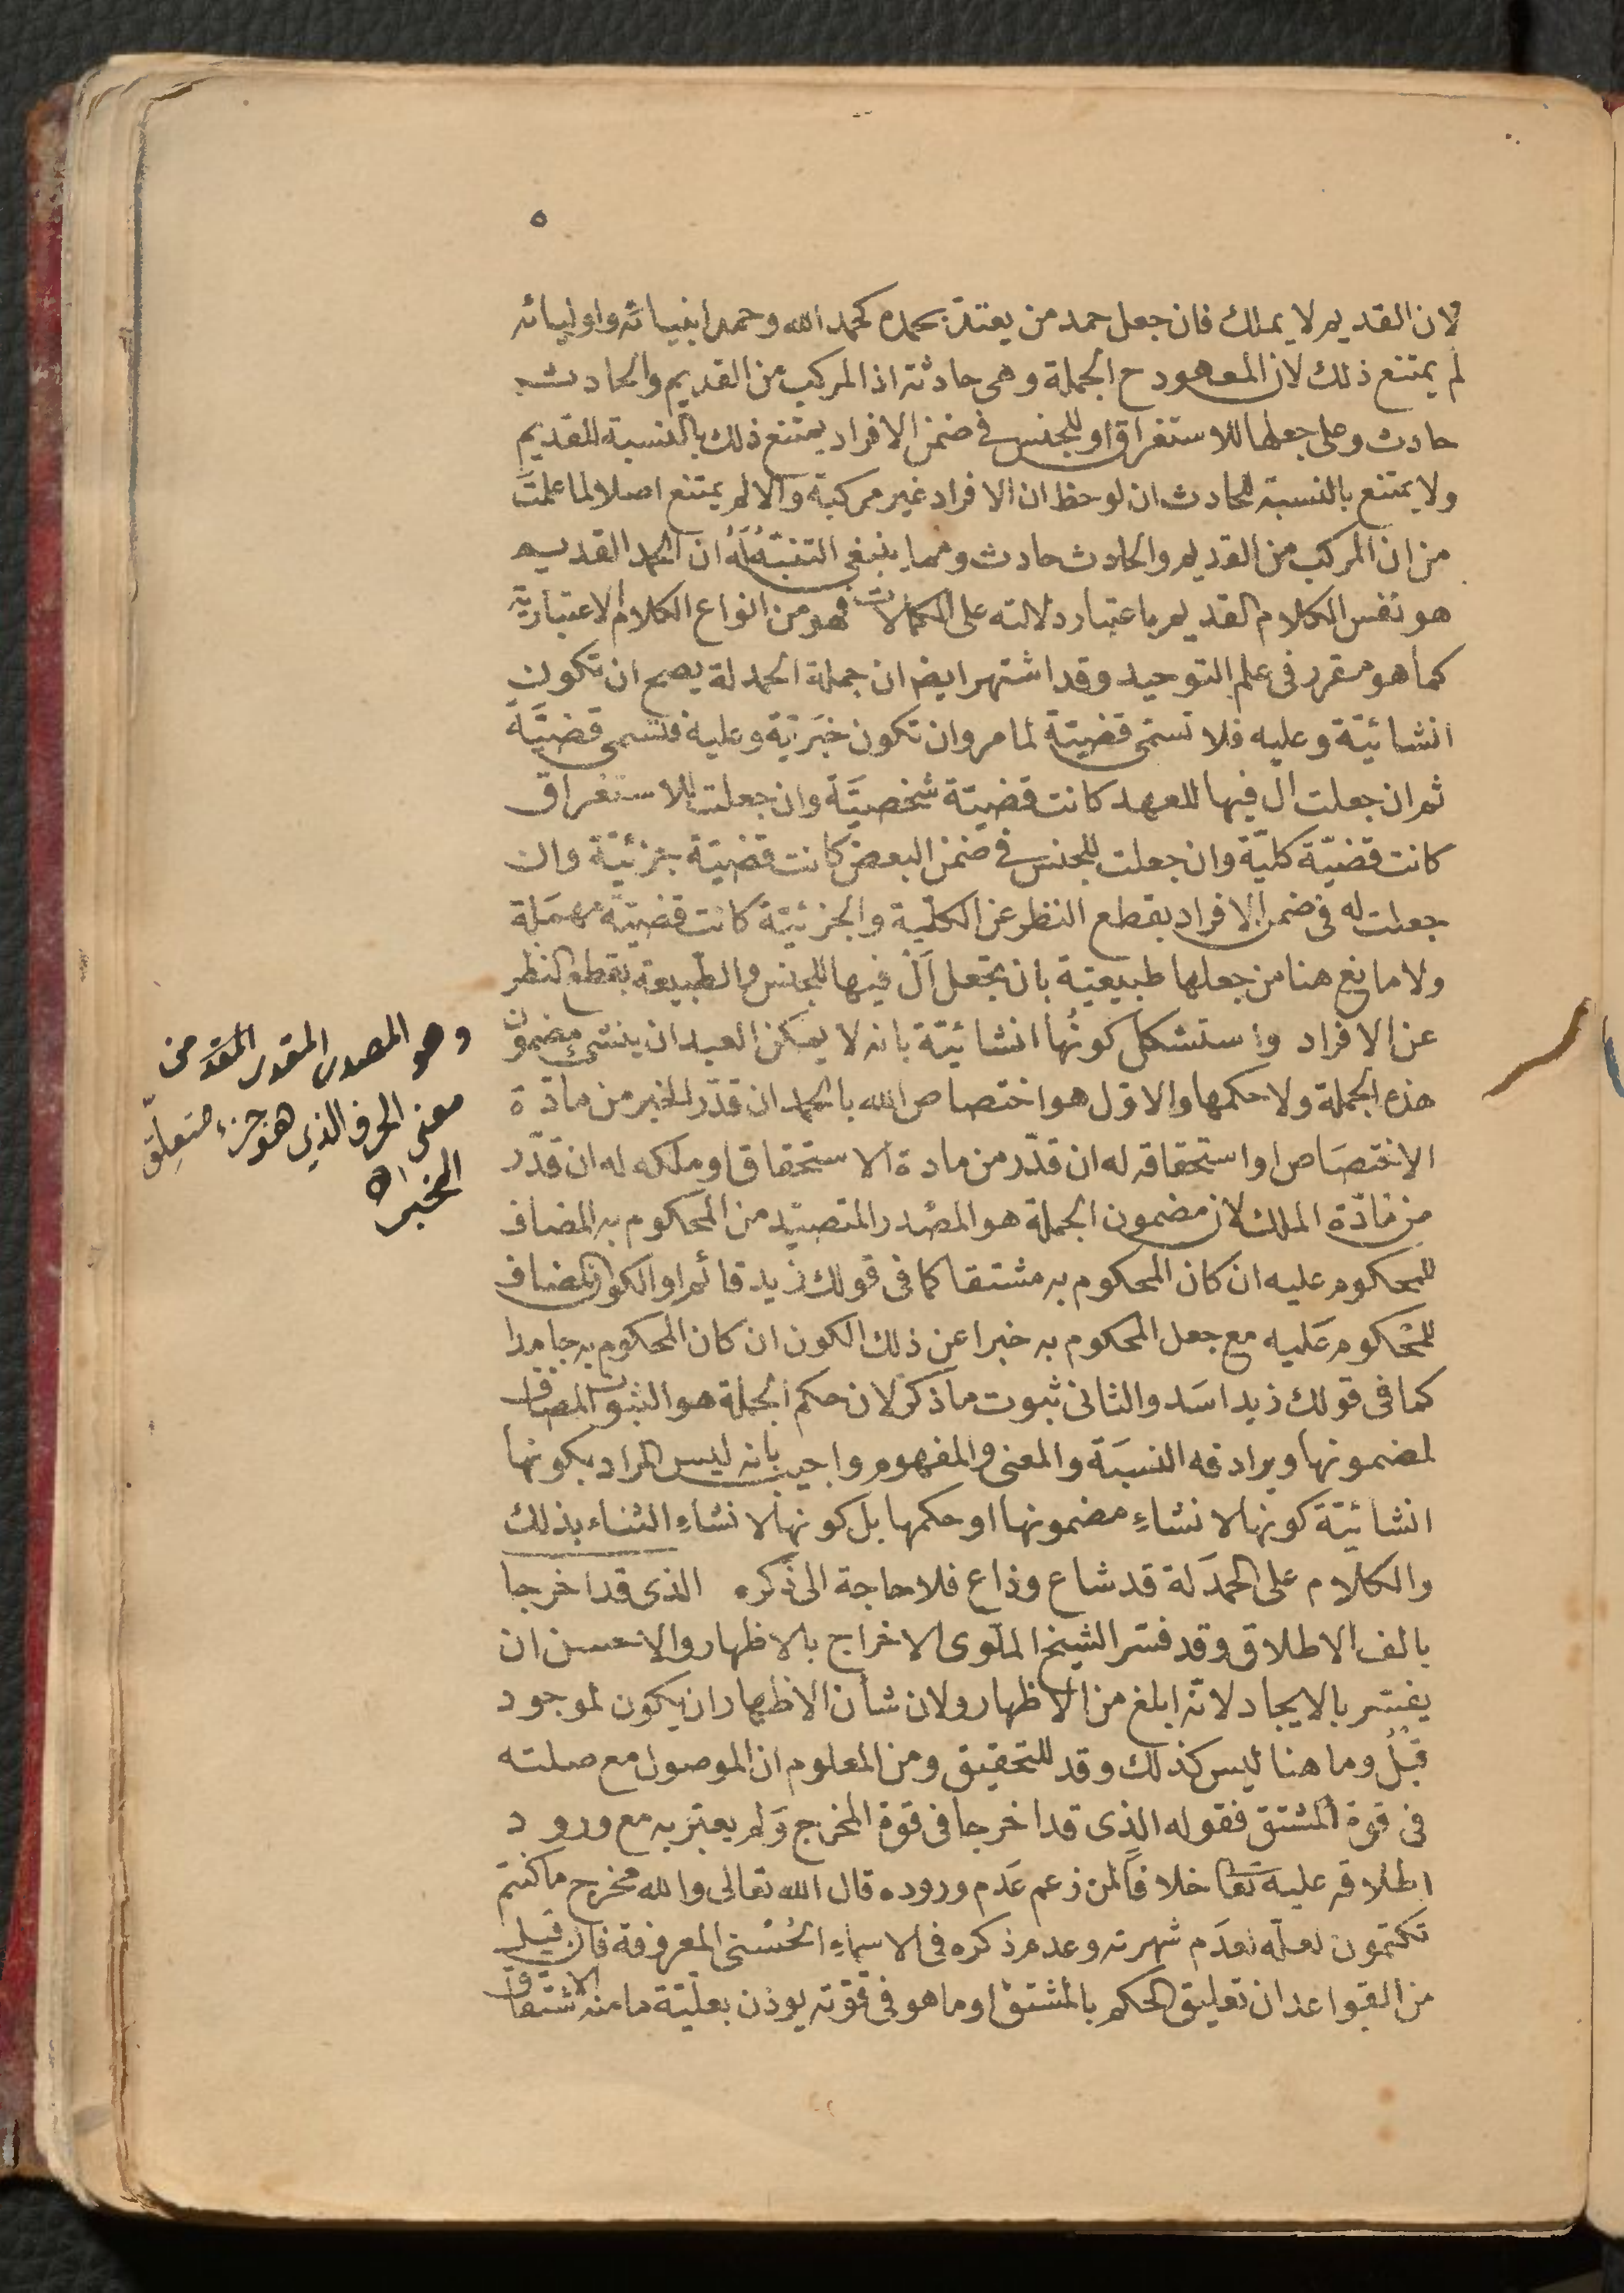 ٥
لان القديم لا يملك فان جعل حمد من يعتد بحمده كحمد الله وحمد انبيائه واوليائه
لم يمتنع ذلك لان المعهود ح الجملة وهى حادثة اذ المركب من القديم والحادث
حادث وعلى جعلها للاستغراق او للجنس فى ضمن الافراد يمتنع ذلك بالنسبة للقديم
ولا يمتنع بالنسبة للحادث ان لوحظ ان الافراد غير مركبة والا لم يمتنع اصلا لما علمت
من ان المركب من القديم والحادث حادث ومما ينبغى التنبّه له ان الحمد القديم
هو نفس الكلام القديم باعتبار دلالته على الكمالات فهو من انواع الكلام الاعتبارية
كما هو مقرر فى علم التوحيد وقد اشتهر ايضا ان جملة الحمدلة يصح ان تكون
انشائيّة وعليه فلا تسمّى قضيّة لما مر وان تكون خبَريّة وعليه فتسمى قضيَّة
ثم ان جعلت ال فيها للعهد كانت قضيّة شخصيَّة وان جعلت للاستغراق
كانت قضيّة كليّة وان جعلت للجنس فى ضمن البعض كانت قضيّة جزئيّة وان
جعلت له فى ضمن الافراد بقطع النظر عن الكليّة والجزئيّة كانت قضيّة مهمَلة
ولا مانع هنا من جعلها طبيعيّة بان تجعل اَلْ فيها للجنس والطبيعة بقطع النظر
عن الافراد واستشكل كونُها انشائيّة بانه لا يمكن العبد ان ينشئ مضمون
هذه الجملة ولا حكمها والاوّل هو اختصاص الله بالحمد ان قدّر الخبر من مادّة
الاختصَاص او استحقاقه له ان قدّر من مادة الاستحقاق او ملكه له ان قدّر
من مَادّة الملك لان مضمون الجملة هو المصْدر المتصيّد من المحكوم به المضاف
للمحكوم عليه ان كان المحكوم به مشتقا كما فى قولك زيد قائم او الكون المضاف
للمحكوم عَليه مع جعل المحكوم به خبرا عن ذلك الكون ان كان المحكوم به جامدا
كما فى قولك زيد اسَد والثانى ثبوت ما ذكر لان حكم الجملة هو الثبوت المضاف
لمضمونها ويرادفه النسبَة والمعنى والمفهوم واجيب بانه ليس المراد بكونها
انشائيّة كونها لانشاءِ مضمونها او حكمها بل كونها لانشاءِ الثناء بذلك
والكلام على الحمدَلة قد شاع وذاع فلا حاجة الى ذكره الذى قد اخرجا
بالف الاطلاق وقد فسّر الشيخ الملّوى الاخراج بالاظهار والاحسن ان
يفسّر بالايجاد لانّه ابلغ من الاظهار ولان شأن الاظهار ان يكون لموجود
قبْلُ وما هنا ليس كذلك وقد للتحقيق ومن المعلوم ان الموصول مع صلته
فى قوة المشتق فقوله الذى قد اخرجا فى قوة المخرج وَلم يعبّر به مع ورود
اطلاقه عليه تعَا خلافاً لمن زعم عَدم وروده قال الله تعالى والله مخرج ما كنتم
تكتمون لعلّه لعدَم شهرته وعدم ذكره فى الاسماءِ الحُسْنى المعروفة فان قيل
من القواعد ان تعليق الحكم بالمشتق او ما هو فى قوّته يوذن بعليّة ما منه الاشتقاق
وهو المصدر المقدر المقدّ من
معنى الحرف الذى هو جزء متعلِّق
الخبر اه